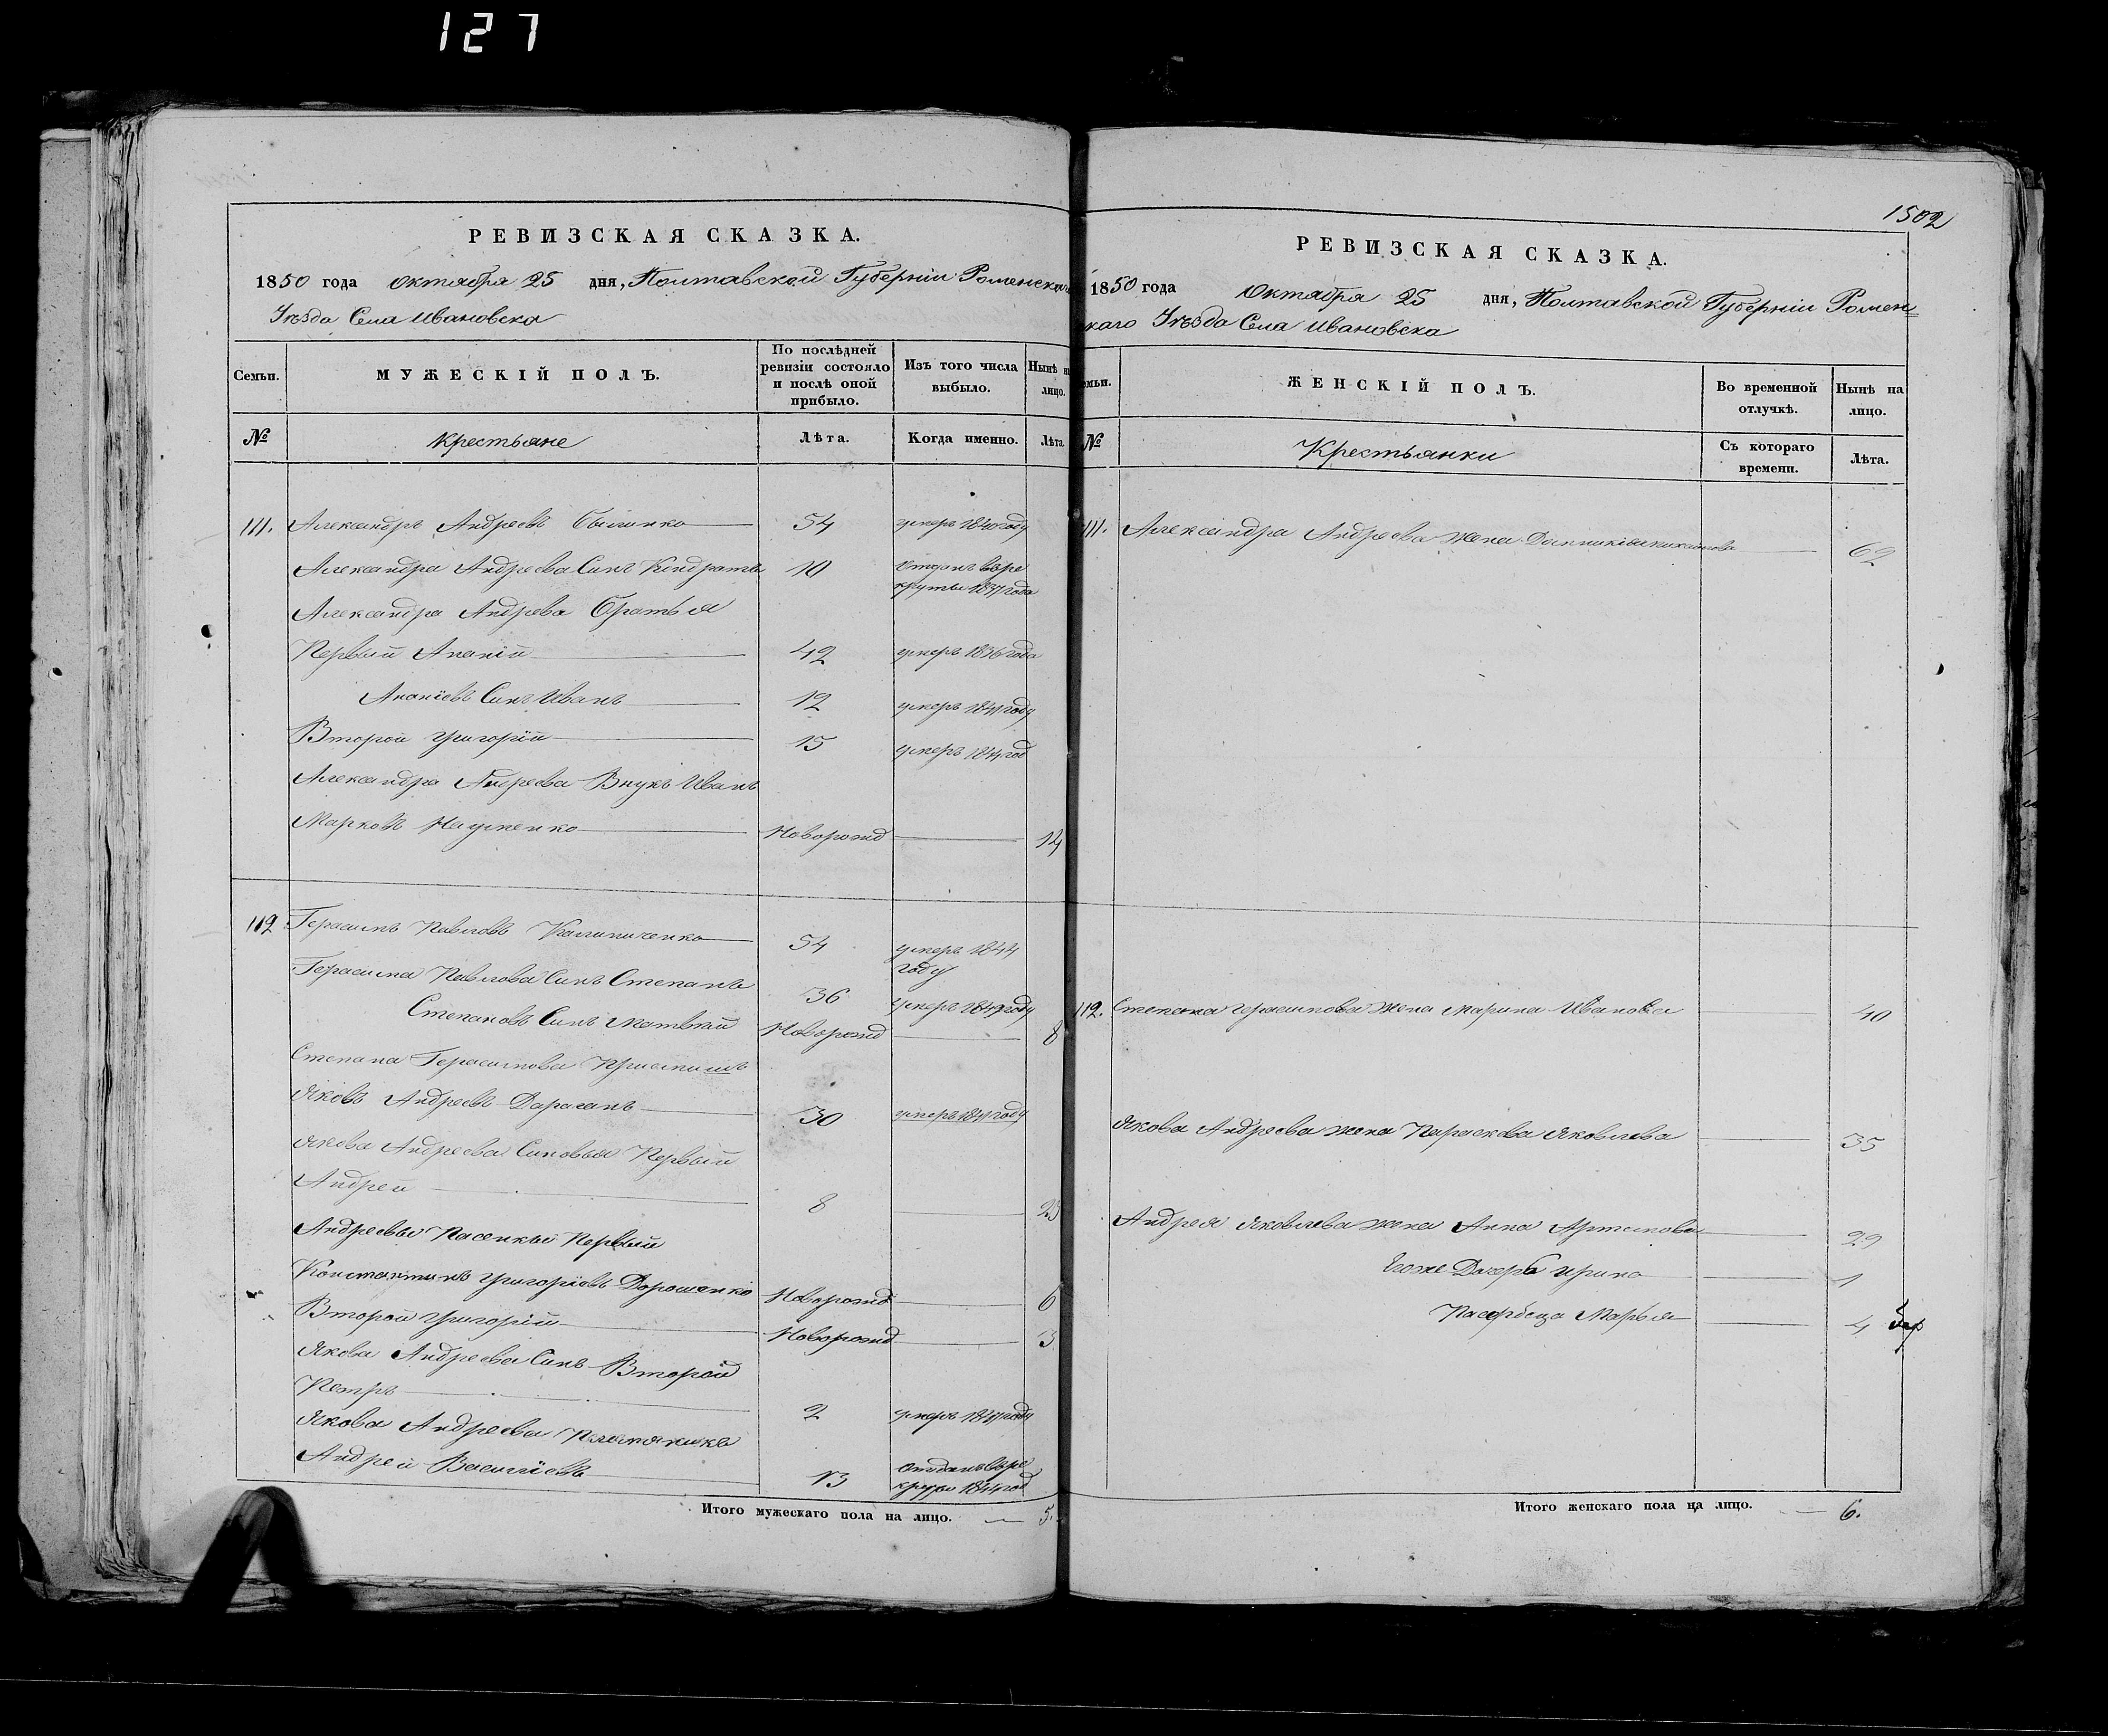 127
РЕВИЗСКАЯ СКАЗКА.
1850 года Октября 25 дня, Полтавской Губерніи Роменскаго
Уѣзда Села Ивановска
Семьи.
МУЖЕСКІЙ ПОЛЪ.
По послѣдней ревизіи состояло и послѣ оной прибыло.
Изъ того числа выбыло.
Нынѣ на лицо.
№
Крестьяне
Лѣта.
Когда именно.
Лѣта.
111. Александръ Андреевъ 54 умеръ 1840 году
Александра Андреева Сынъ Кондратъ 10 Отданъ въ ре
круты 1837 года
Александра Андреева Братья
Первый Ананій 42 умеръ 1836 года
Ананіевъ Сынъ Иванъ 12 умеръ 1841 году
Второй Григорій 15 умеръ 1844 год
Александра Андреева Внукъ Иванъ
Марковъ Науменко Новорожд 14
112 Герасимъ Павловъ Калиниченко 54 умеръ 1844
году
Герасима Павлова Сынъ Степанъ 36 умеръ 1849 году
Степановъ Сынъ Матвѣй Новорожд 8
Степана Герасимова Пріемышъ
Яковъ Андреевъ Дараганъ 30 умеръ 1841 году
Якова Андреева Сыновья Первый
Андрей 8 23
Андреевы Пасенки Первый
Константинъ Григоріевъ Дорошенко Новорожд 6
Второй Григорій Новорожд 3
Якова Андреева Сынъ Второй
Петръ 2 умеръ 1841 году
Якова Андреева Племянникъ
Андрей Васильевъ 13 Отданъ въ ре
круты 1844 год
Итого мужескаго пола на лицо. 5.
1502
РЕВИЗСКАЯ СКАЗКА.
1850 года Октября 25 дня, Полтавской Губерніи Ромен
скаго Уѣзда Села Ивановска
Семьи.
ЖЕНСКІЙ ПОЛЪ.
Во временной отлучкѣ.
Нынѣ на лицо.
№
Крестьянки
Съ котораго времени.
Лѣта.
111. Александра Андреева жена 62
112. Степана Герасимова жена Марина Иванова 40
Якова Андреева жена Параскова Яковлева 35
Андрея Яковлева жена Анна Артемова 29
Егоже Дочерь Ирина 1
Пасербица Марья 4
Итого женскаго пола на лицо. 6.